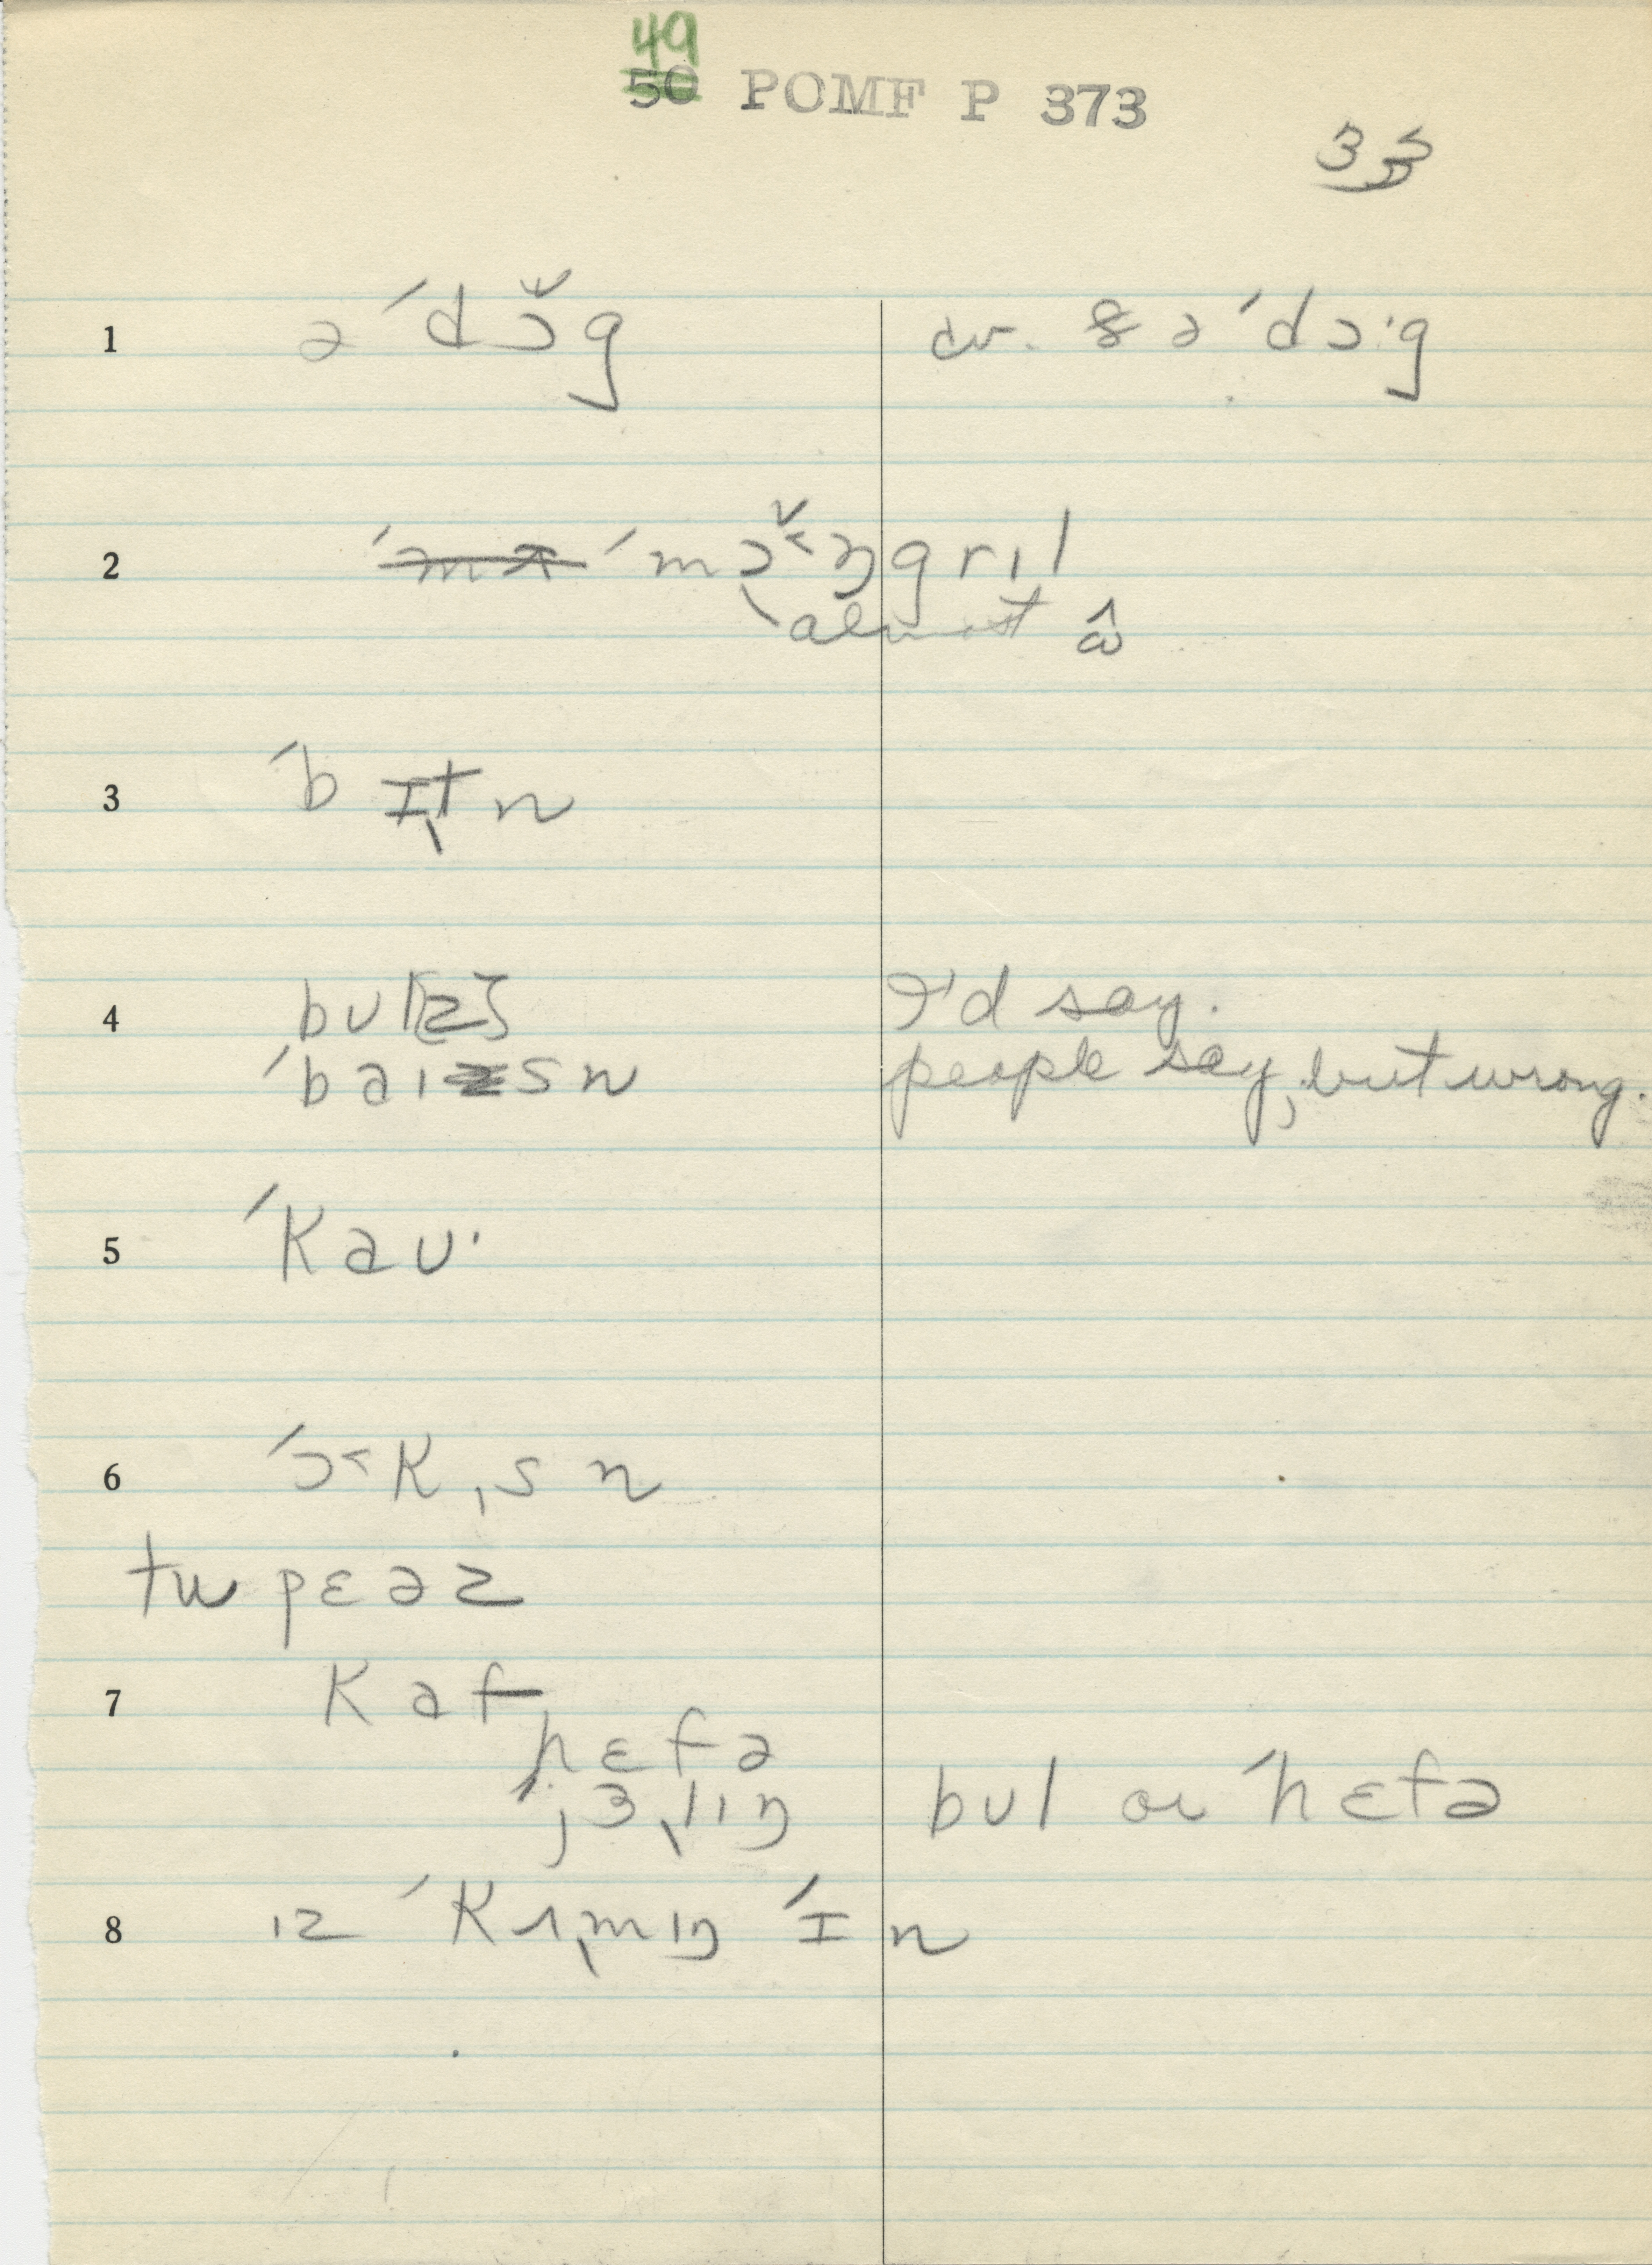 49
50 POMF P 373
33
1 ə ˈdɔ̌g cv. & ə ˈdɔ·g
2 ˈmɔ̌˂ŋgrɪl
almost ɒ̂
3 ˈbɪt̩n
4 bʊl[z] I'd say.
ˈbaɪsn people say, but wrong.
5 ˈkaʊ·
6 ˈɔ˂k,sn
tu pɛəz
7 kaf
hɛfə
jɜ,lɪŋ bʊl or ˈhɛfə
8 ɪz ˈkʌ,mɪŋ ˈɪn